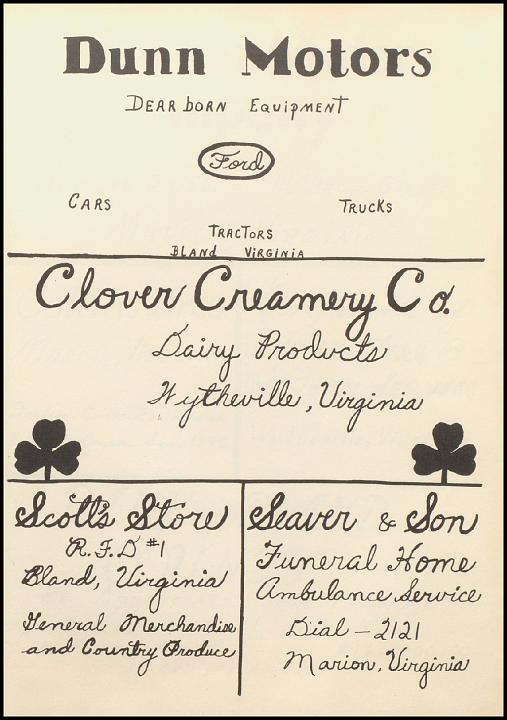 Dunn Motors
DEARBORN EQUIPMENT
Ford
CARS TRUCKS
TRACTORS
BLAND VIRGINIA
Clover Creamery Co.
Dairy Products
Wytheville, Virginia
Scott's Store
R.F.D #1
Bland, Virginia
General Merchandise
and Country Produce
Seaver & Son
Funeral Home
Ambulance Service
Dial - 2121
Marion, Virginia